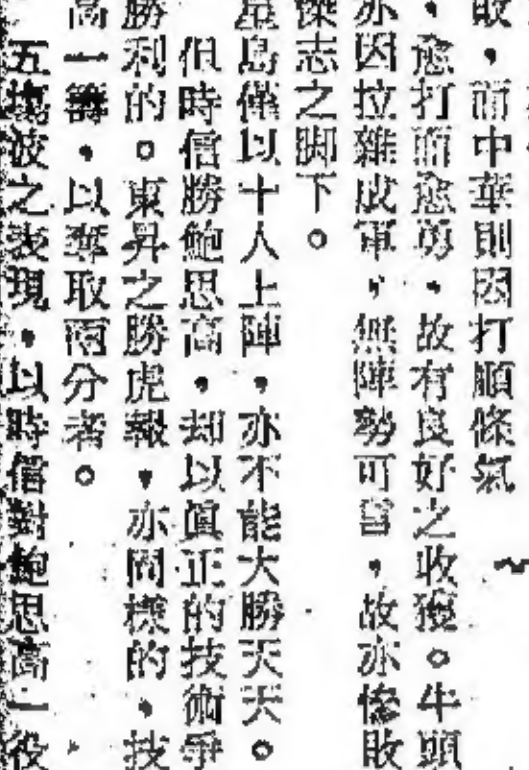 敗，而中華則因打順條氣
，愈打而愈勇，故有良好之收獲。牛頭
亦因拉雜成軍，無陣勢可言，故亦慘敗
傑志之脚下。
星島僅以十人上陣，亦不能大勝天天。
但時信勝鮑思高，却以眞正的技術爭
勝利的。東昇之勝虎報，亦同樣的，技
高一籌，以奪取兩分者。
五塊波之表現，以時信對鮑思高一役